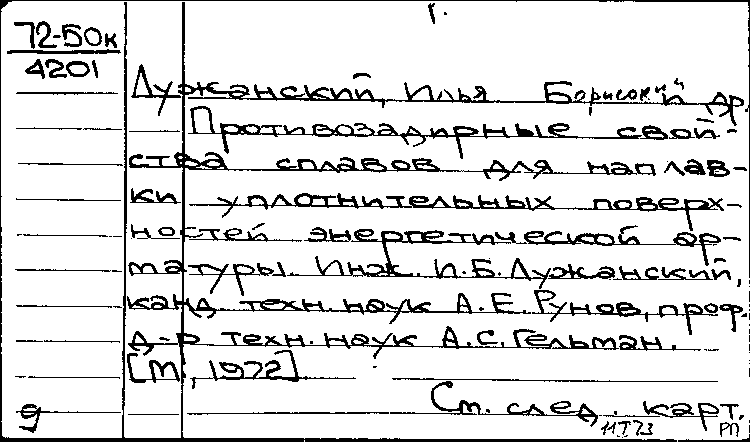 г.
72-50к
4201
Лужанский, Илья Борисович и др.
Противозадирные свой-
ства сплавов для наплав-
ки уплотнительных поверх-
ностей энергетической ар-
матуры. Инж. И.Б. Лужанский,
канд. техн. наук А.Е. Рунов, проф.
д-р техн. наук А.С. Гельман.
[М., 1972]
См. след. карт.
9
11 I 73 РП